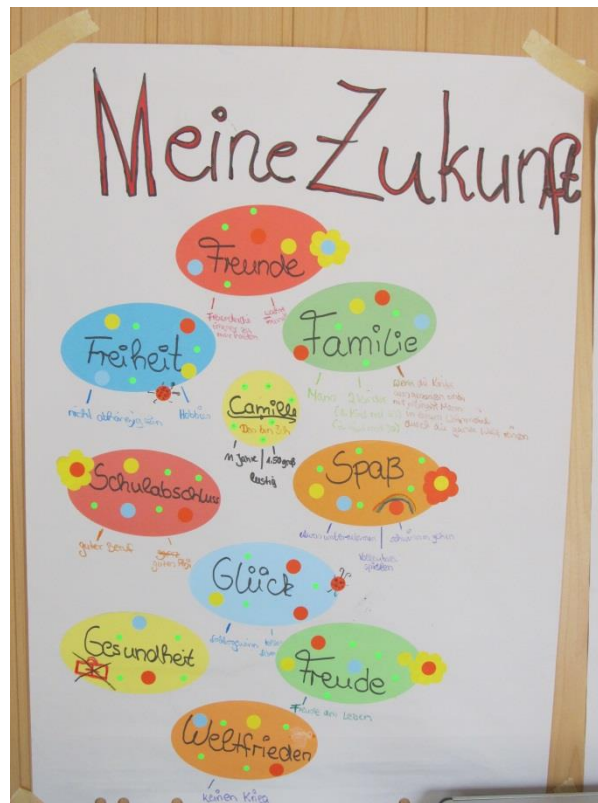 Meine Zukunft
Freunde
Freiheit
Familie
nicht abhängig sein
Hobbies
Mann
2 Kinder
Camille
Das bin Ich
11 Jahre
1.50 groß
lustig
Schulabschluss
guter Beruf
Spaß
schwimmen gehen
spielen
Glück
Gesundheit
Freude
Freude am Leben
Weltfrieden
keinen Krieg